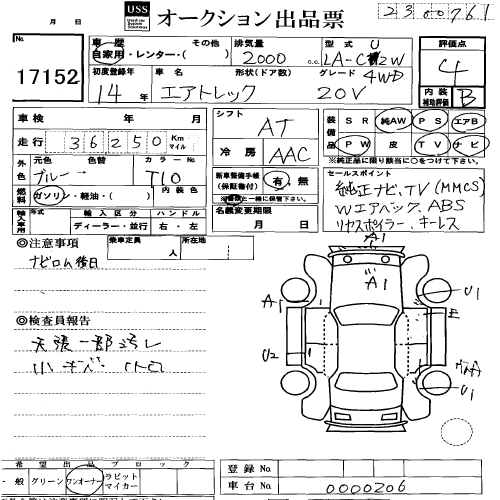 USS オークション出品票
2300761
月 日
No.
17152
車歴 自家用・レンタ・( ) その他
排気量 2000 c.c.
型式 U LA-CU2W
評価点 4
初度登録年 14年
車名 エアトレック
形状(ドア数) グレード 4WD 20V
内装補助評価 B
車検 年 月
シフト AT
装備品 SR 純AW PS エアB
PW 皮 TV ナビ
※純正品に限り該当に○をつけて下さい。
走行 36250 Km マイル
冷房 AAC
外色 元色 ブルー 色替 カラーNo. T10
新車整備手帳(保証書付) 有・無
※書類と一緒に保管下さい。
セールスポイント
純正ナビ、TV (MMCS)
Wエアバック、ABS
リヤスポイラー、キーレス
燃料 ガソリン・軽油・( ) 内装色
名義変更期限 月 日
輸入車用 年式 輸入区分 ハンドル
ディーラー・並行 右・左
◎注意事項
乗車定員 人
所在地
ナビロム後日
A1
A1
A1
U1
E
U2
U1
◎検査員報告
天張一部汚レ
小キズ 凹
希望出品ブロック
一般 グリーン ワンオーナー ラビットマイカー
登録No.
車台No. 0000206